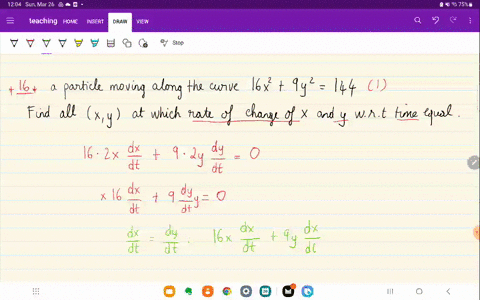 12:04 Sun, Mar 26
75%
teaching HOME INSERT DRAW VIEW
Stop
16 a particle moving along the curve 16x² + 9y² = 144 (1)
Find all (x,y) at which rate of change of x and y w.r.t time equal.
16·2x dx/dt + 9·2y dy/dt = 0
x 16 dx/dt + 9 dy/dt y = 0
dx/dt = dy/dt. 16x dx/dt + 9y dx/dt